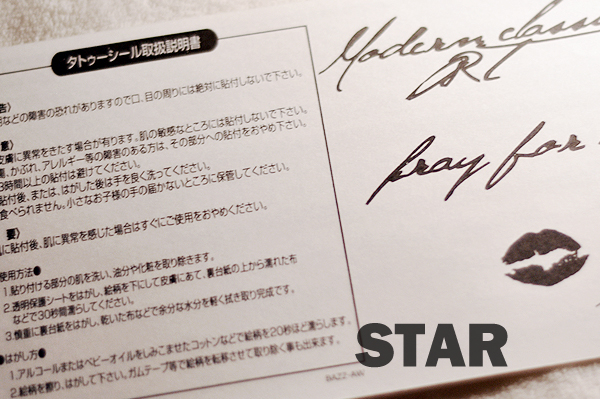 タトゥーシール取扱説明書
告〉
などの障害の恐れがありますので口、目の周りには絶対に貼付しないで下さい。
意〉
皮膚に異常をきたす場合が有ります。肌の敏感なところには貼付しないで下さい。
、かぶれ、アレルギー等の障害のある方は、その部分への貼付をおやめ下さい。
3時間以上の貼付は避けてください。
貼付後、または、はがした後は手を良く洗ってください。
食べられません。小さなお子様の手の届かないところに保管してください。
要〉
に貼付後、肌に異常を感じた場合はすぐにご使用をおやめください。
使用方法●
1.貼り付ける部分の肌を洗い、油分や化粧を取り除きます。
2.透明保護シートをはがし、絵柄を下にして皮膚にあて、裏台紙の上から濡れた布
などで30秒間濡らしてください。
3.慎重に裏台紙をはがし、乾いた布などで余分な水分を軽く拭き取り完成です。
●はがし方●
1.アルコールまたはベビーオイルをしみこませたコットンなどで絵柄を20秒ほど濡らします。
2.絵柄を擦り、はがして下さい。ガムテープ等で絵柄を転移させて取り除く事も出来ます。
BAZZ-AW
Modern classi
pray for
STAR